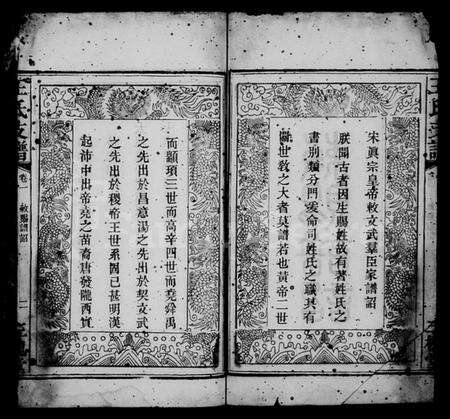 宋眞宗皇帝敕文武羣臣家譜詔
朕聞古者因生賜姓故有著姓氏之
書別類分門爰命司姓氏之職其有
關世敎之大者莫譜若也黃帝二世
而顓頊三世而高辛四世而堯舜禹
之先出於昌意湯之先出於契文武
之先出於稷帝王世系固已甚明漢
起沛中出帝堯之苗裔唐發隴西實
王氏支譜
卷一
敕賜譜詔
二
王氏支譜